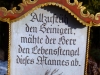 Allzufrüh
den Seinigen,
mähte der Herr
den Lebensstengel
dieses Mannes ab.